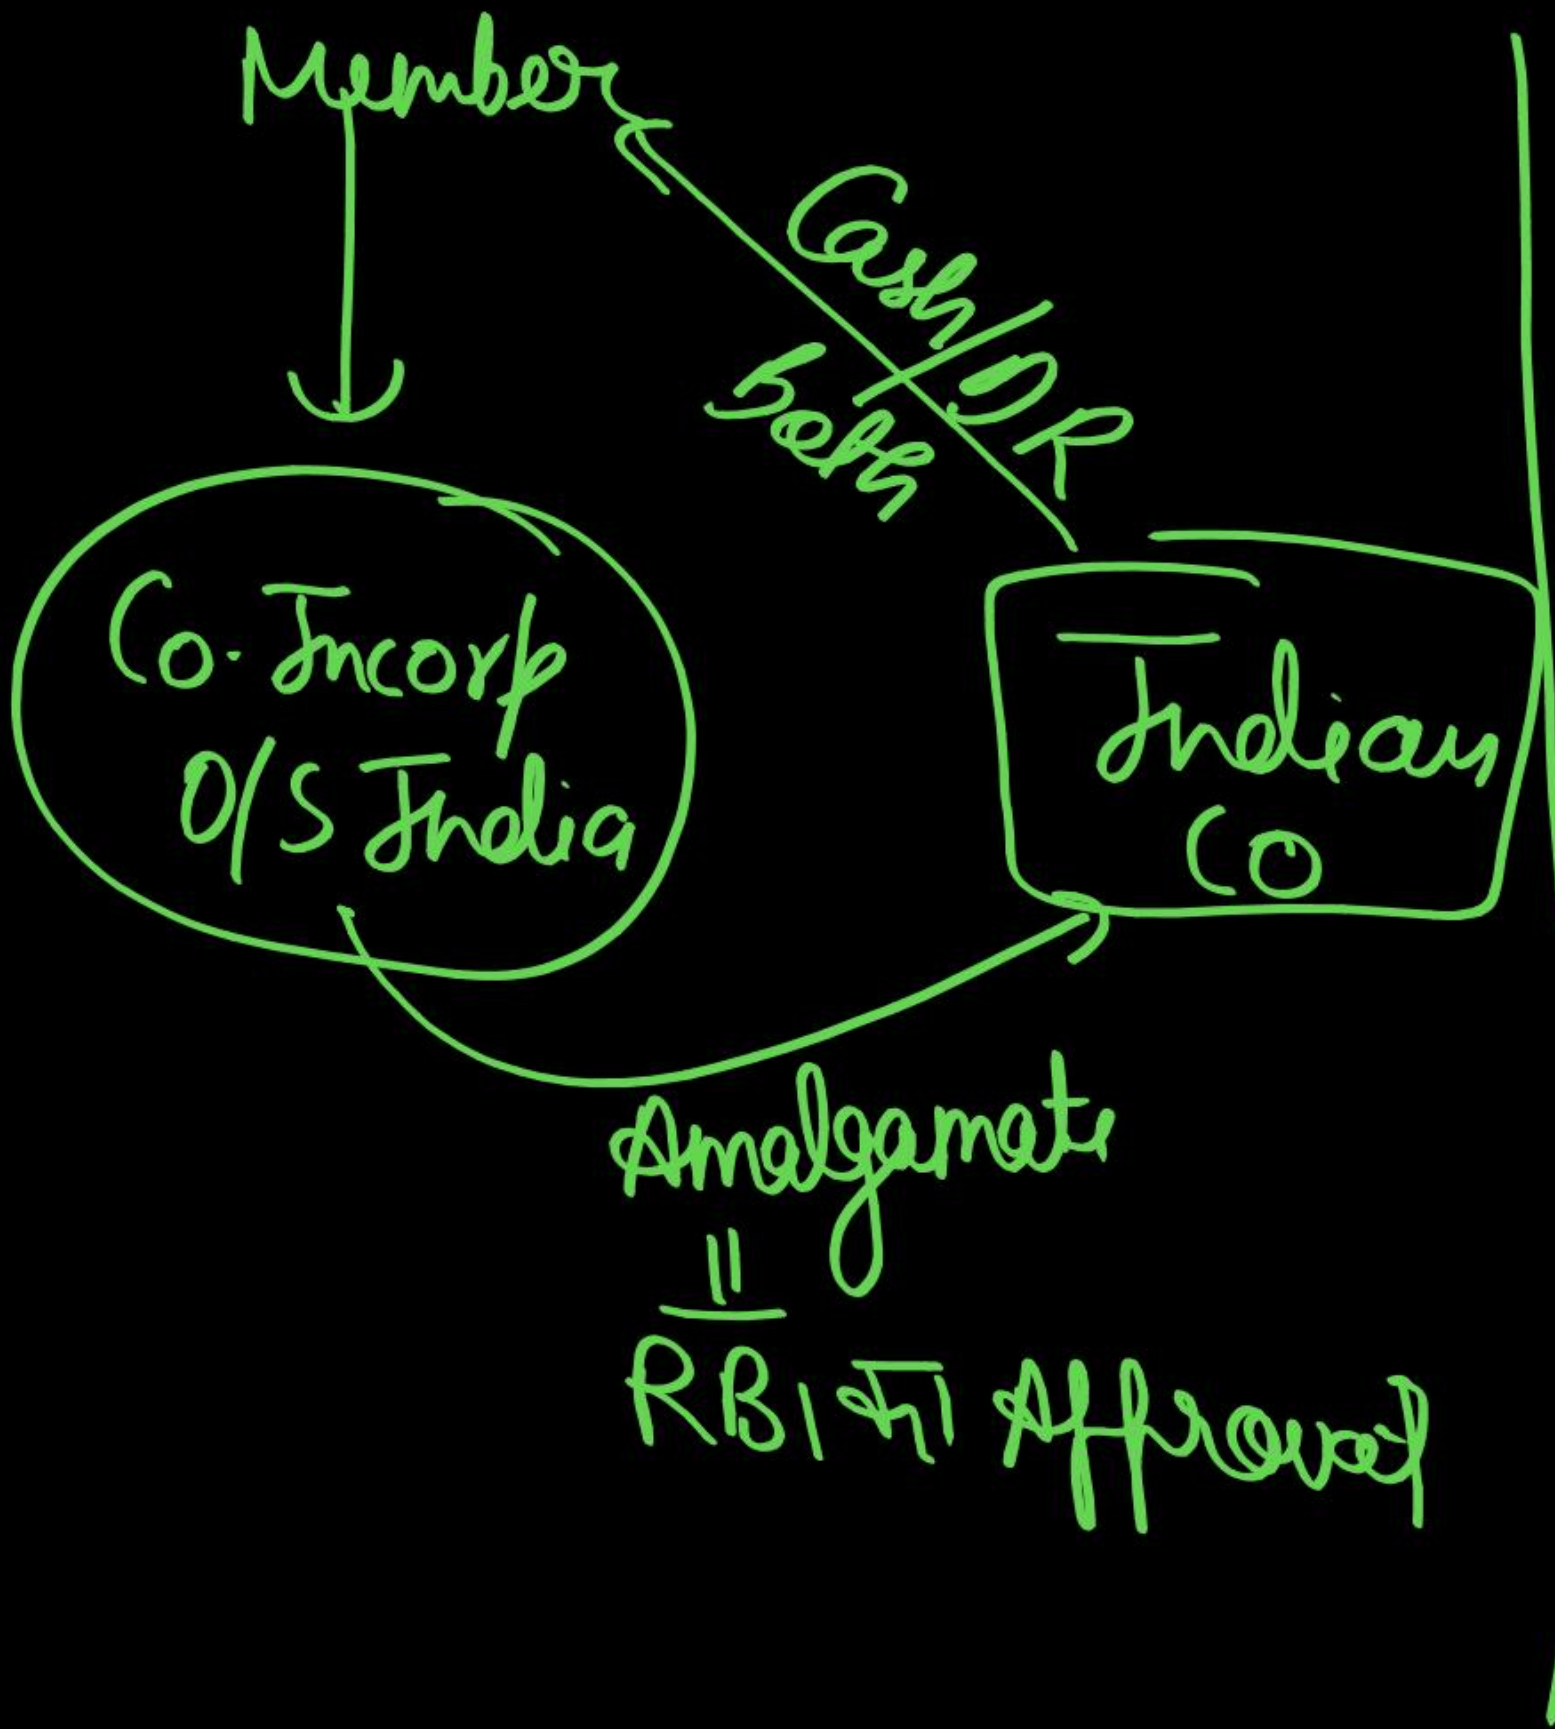 Member
Cash/DR
Both
Co. Incorp
O/S India
Indian
CO
Amalgamate
RBI का Approval